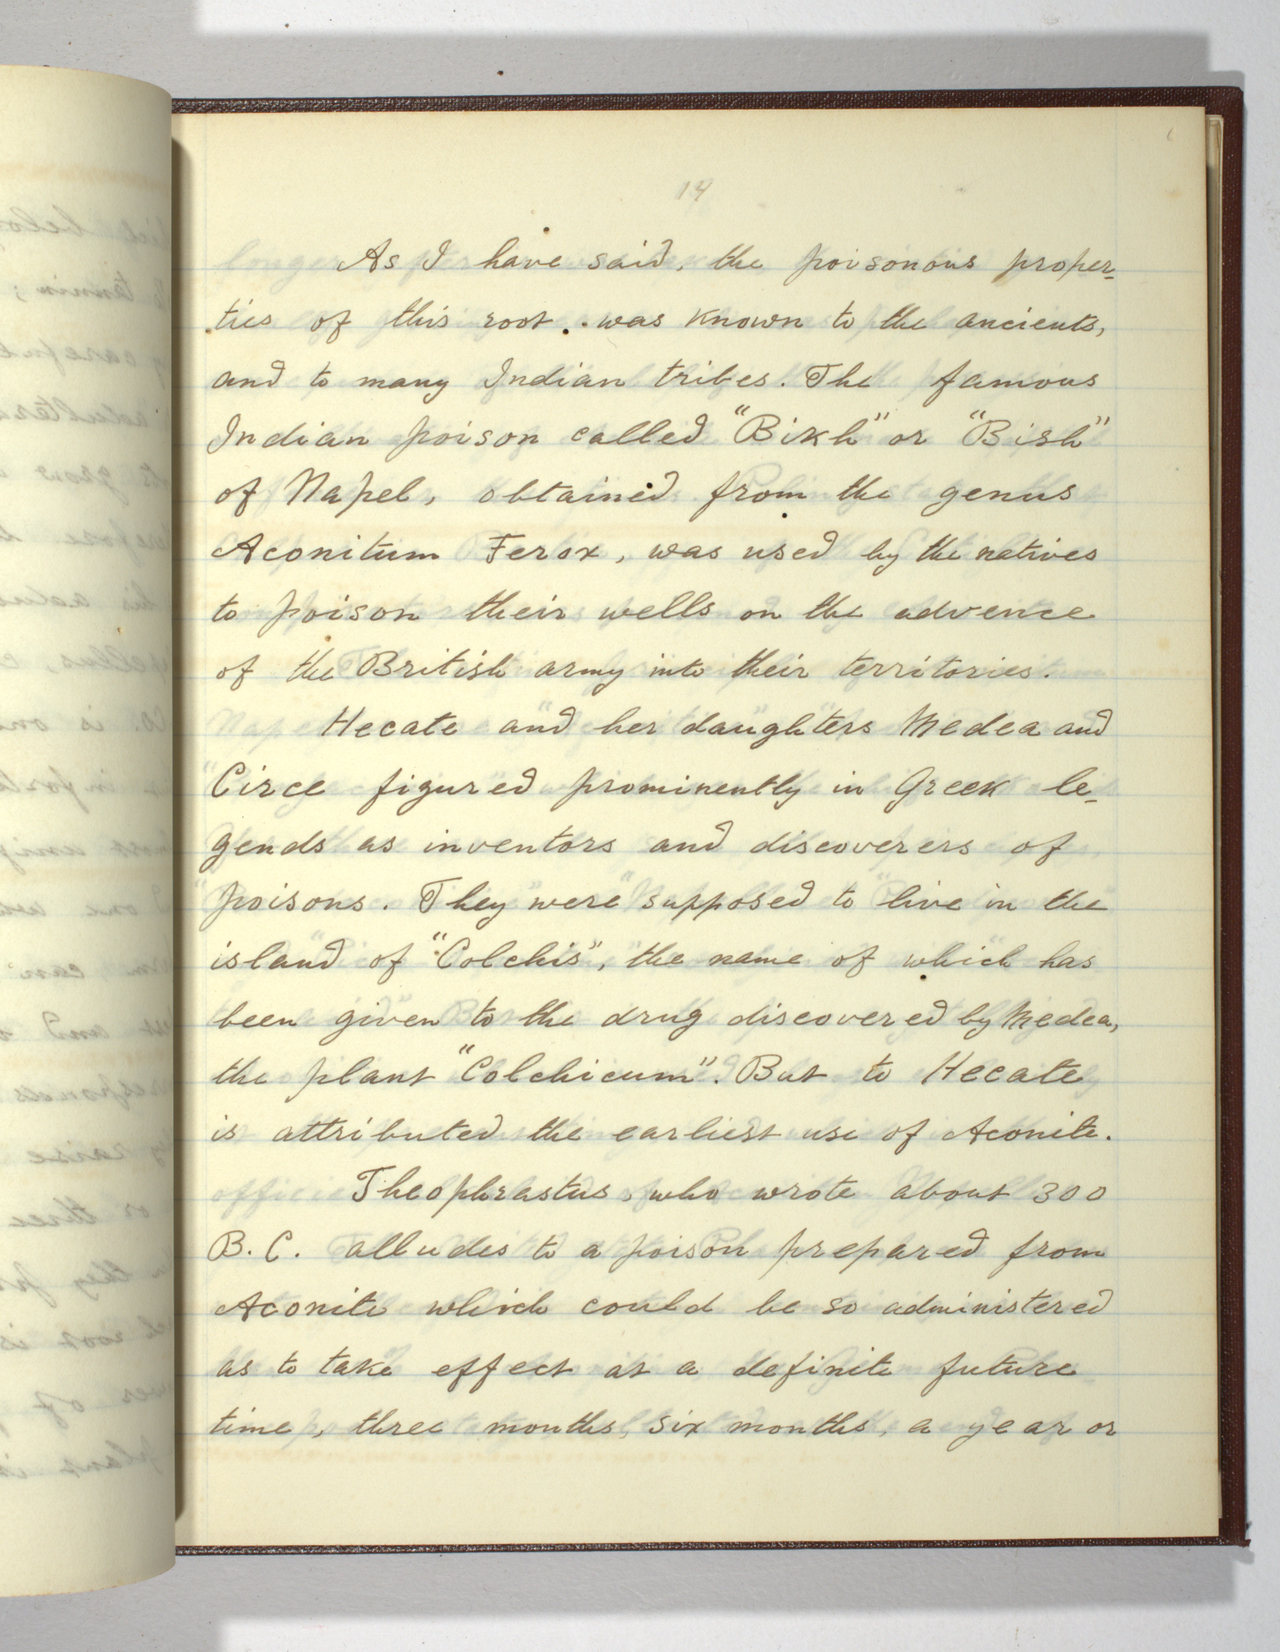 14
As I have said, the poisonous proper-
ties of this root was known to the ancients,
and to many Indian tribes. The famous
Indian poison called "Bikh" or "Bish"
of Napel, obtained from the genus
Aconitum Ferox, was used by the natives
to poison their wells on the advence
of the British army into their territories.
Hecate and her daughters Medea and
Circe figured prominently in Greek le-
gends as inventors and discoverers of
poisons. They were supposed to live in the
island of "Colchis", the name of which has
been given to the drug discovered by Medea,
the plant "Colchicum". But to Hecate
is attributed the earliest use of Aconite.
Theophrastus who wrote about 300
B.C. alludes to a poison prepared from
Aconite which could be so administered
as to take effect at a definite future
time, three months, six months, a year or